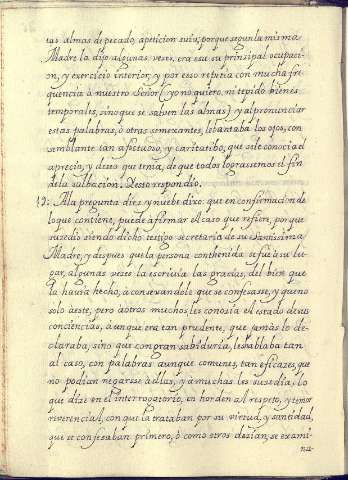 tas almas de pecado, apeticion suia; porque segun la misma
Madre la dijo algunas vezes, era esa su prinsipal ocupaci-
on, y exercicio interior, y por esso repetia con mucha fre
quencia á nuestro Señor (yo no quiero, ni te pido bienes
temporales, sino que se salven las almas) y al pronunciar
estas palabras, ò otras semexantes, lebantaba los ojos, con
semblante tan afectuoso, y caritatibo, que se le conocia el
aprecio, y deseo que tenia, de que todos lograssemos el fin
de la salbacion. Yesso respondio.
19: Ala pregunta dies y nuebe dixo: que en confirmacion de
lo que contiene, puede afirmar el caso que refiere, por que
susedio siendo dicho testigo secretaria de su Santissima
Madre, y despues que la persona contenida se fué a su lu
gar, algunas vezes la escriuia las gracias, del bien que
la hauia hecho, à consexandole que se confesasse, y que no
solo aeste, pero àotros muchos les conosia el estado de sus
conciencias, à unque era tan prudente, que jamàs lo de-
claraba, sino que con gran sabiduria, les hablaba tan
al caso, con palabras aunque comunes, tan eficazes, que
no podian negarse à ellas, y à muchas les susedia, lo
que dize en el interrogatorio, en horden al respeto, y temor
reverencial, con que la trataban por su virtud, y santidad,
que se confesaban primero, ò como otros dezian, se exami
na-